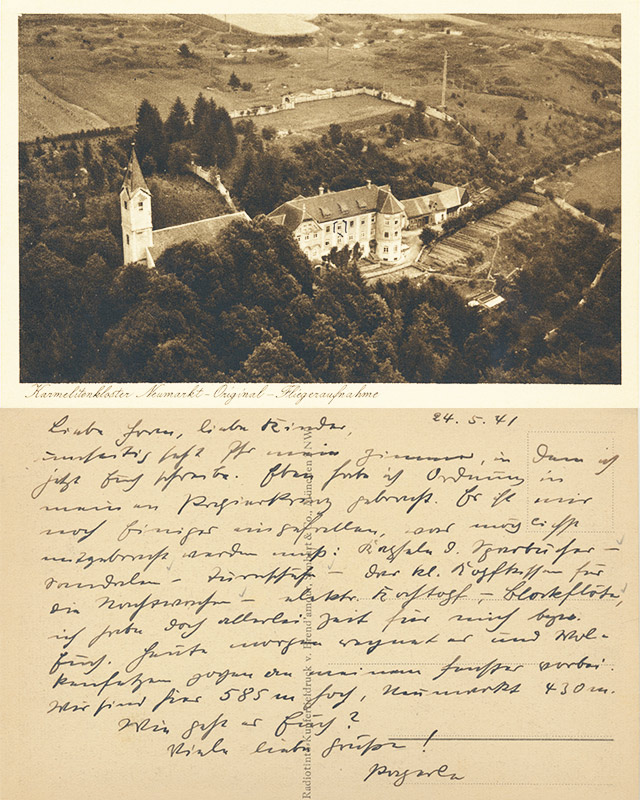 Karmelitenkloster Neumarkt - Original - Fliegeraufnahme
24. 5. 41
Liebe, liebe Kinder,
umseitig seht Ihr mein Zimmer, in dem ich
jetzt Euch schreibe. Eben habe ich Ordnung in
meinen gebracht. Es ist mir
noch Einiges eingefallen, was möglichst
mitgebracht werden muß: Kapseln d. Sparbücher -
Sandalen - Turnschuhe - das kl. Kopfkissen für
die Nachtwachen - elektr. Kochtopf, - Blockflöte,
ich habe doch allerlei Zeit für mich bzw.
Euch. Heute morgen regnet es und Wol-
kenfetzen jagen an meinem Fenster vorbei.
Wir sind hier 585 m hoch, Neumarkt 430 m.
Wie geht es Euch?
Viele liebe Grüße!
Radiotinto-Kupfertiefdruck v. &amp; Co., München NW